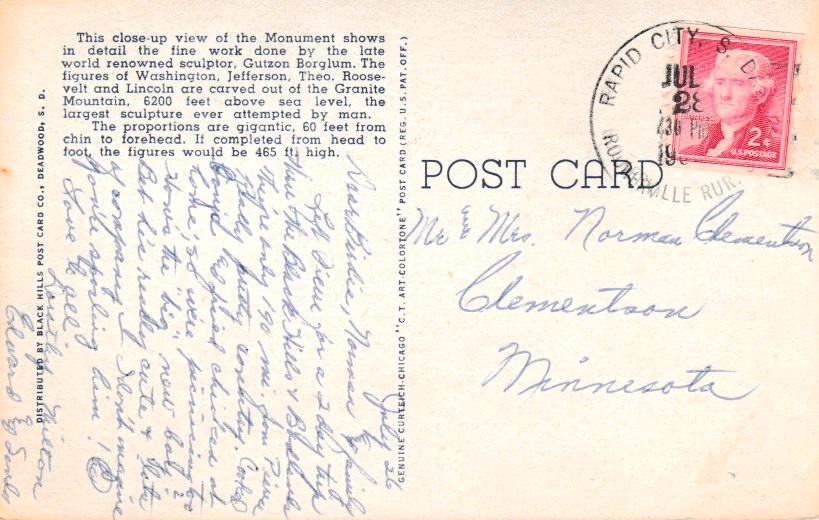 This close-up view of the Monument shows
in detail the fine work done by the late
world renowned sculptor, Gutzon Borglum. The
figures of Washington, Jefferson, Theo. Roose-
velt and Lincoln are carved out of the Granite
Mountain, 6200 feet above sea level, the
largest sculpture ever attempted by man.
The proportions are gigantic, 60 feet from
chin to forehead. If completed from head to
foot, the figures would be 465 ft. high.
DISTRIBUTED BY BLACK HILLS POST CARD CO., DEADWOOD, S. D.
July 26
Dear Birdie, Norman & family
Left Pierre for a 2 day trip
thru the Black Hills & Badlands
They're only 190 mi. from Pierre
Really pretty country. Cooked
fried chicken at
home, so we're picnicing to
Howis the "big" new baby?
But he's really cute &
of company. I don't imagine
you're spoiling him!
Love to all
Milton
Edward &
GENUINE CURTEICH-CHICAGO "C.T. ART-COLORTONE" POST CARD (REG. U.S. PAT. OFF.)
POST CARD
RAPID CITY, S. D.
JUL
28
430 PM
19
RUR.
2¢
U.S. POSTAGE
Mr & Mrs. Norman Clementson
Clementson
Minnesota